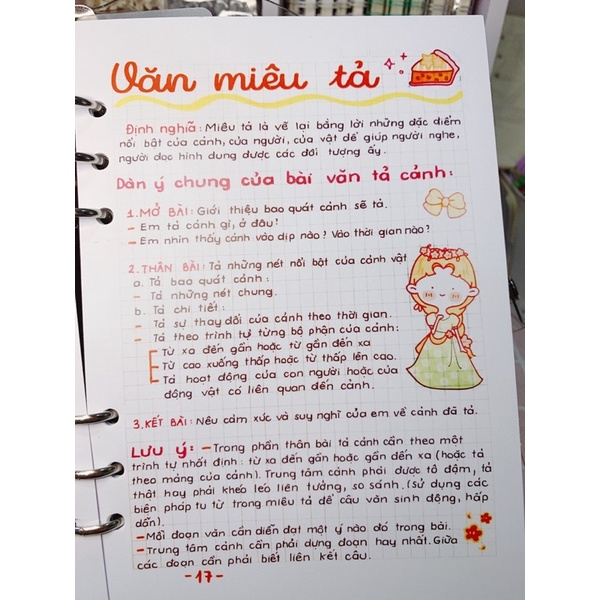 Văn miêu tả
Định nghĩa: Miêu tả là vẽ lại bằng lời những đặc điểm
nổi bật của cảnh, của người, của vật để giúp người nghe,
người đọc hình dung được các đối tượng ấy.
Dàn ý chung của bài văn tả cảnh:
1. MỞ BÀI: Giới thiệu bao quát cảnh sẽ tả.
- Em tả cảnh gì, ở đâu?
- Em nhìn thấy cảnh vào dịp nào? Vào thời gian nào?
2. THÂN BÀI: Tả những nét nổi bật của cảnh vật
a. Tả bao quát cảnh:
- Tả những nét chung.
b. Tả chi tiết:
- Tả sự thay đổi của cảnh theo thời gian.
- Tả theo trình tự từng bộ phận của cảnh:
Từ xa đến gần hoặc từ gần đến xa
Từ cao xuống thấp hoặc từ thấp lên cao.
Tả hoạt động của con người hoặc của
động vật có liên quan đến cảnh.
3. KẾT BÀI: Nêu cảm xúc và suy nghĩ của em về cảnh đã tả.
Lưu ý: - Trong phần thân bài tả cảnh cần theo một
trình tự nhất định: từ xa đến gần hoặc gần đến xa (hoặc tả
theo mảng của cảnh). Trung tâm cảnh phải được tô đậm, tả
thật hay phải khéo léo liên tưởng, so sánh. (sử dụng các
biện pháp tu từ trong miêu tả để câu văn sinh động, hấp
dẫn).
- Mỗi đoạn văn cần diễn đạt một ý nào đó trong bài.
- Trung tâm cảnh cần phải dựng đoạn hay nhất. Giữa
các đoạn cần phải biết liên kết câu.
-17-